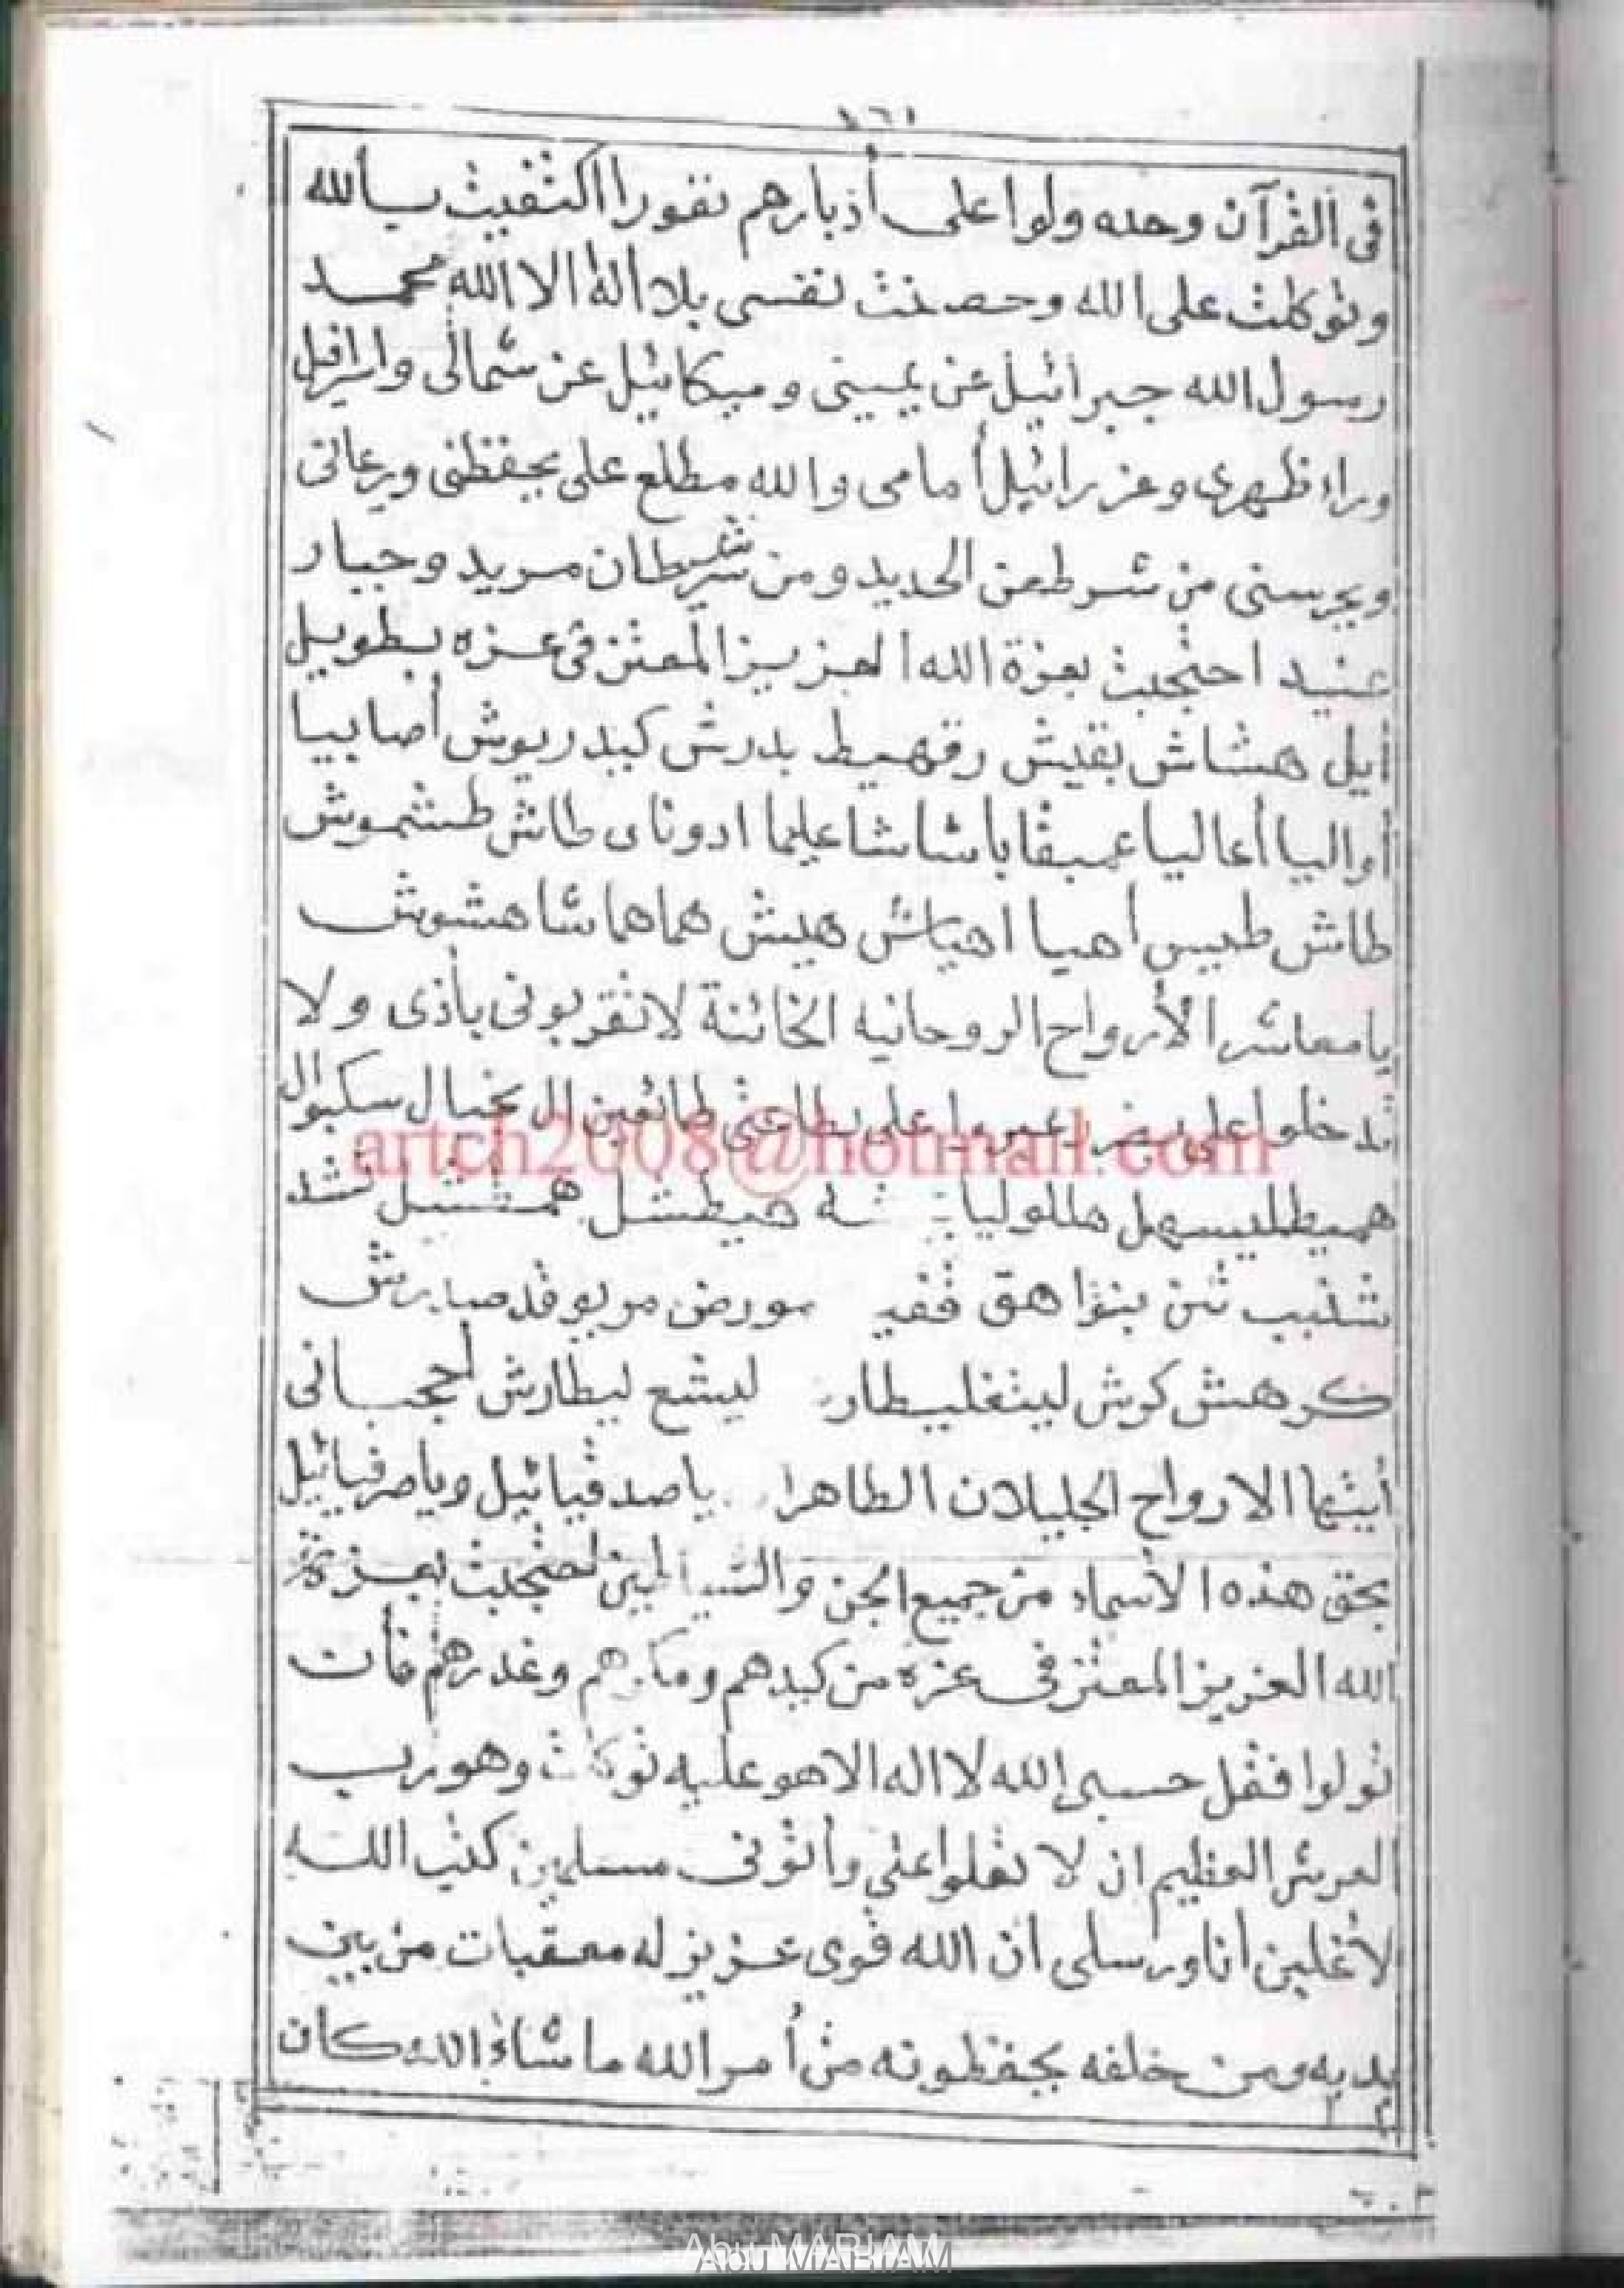 ١٦١
فى القرآن وحده ولوا على أدبارهم نفورا اكتفيت بالله
وتوكلت على الله وحصنت نفسى بلا اله الا الله محمد
رسول الله جبرائيل عن يمينى وميكائيل عن شمالى واسرافيل
وراء ظهرى وعزرائيل أمامى والله مطلع على يحفظنى ويرعانى
ويحرسنى من شر طعن الحديد ومن شر شيطان مريد وجبار
عنيد احتجبت بعزة الله العزيز المعتز فى عزه بطويل
ايل هشاش بقيش رقهيط بدرش كبدريوش أصابيا
أواليا أعاليا عميقا باشاشا عليما ادوناى طاش طشموش
طاش طيس أهيا اهياش هيش هماهماشا هشوش
يا معاشر الأرواح الروحانيه الخائنة لا تقربونى بأذى ولا
تدخلوا على طائعين ال بخيال سكبوال
artch2008@hotmail.com
هميطليسهل هللوليا هيطشل
شذبب شن بنوا هق فقد مورض مربوقد صبرش
كرهش كوش لينغليطار ليشع ليطارش أحجبانى
أيتها الارواح الجليلان الطاهرا يا صدقيائيل ويا صرفيائيل
بحق هذه الأسماء من جميع الجن والشياطين احتجبت بعزة
الله العزيز المعتز فى عزه من كيدهم ومكرهم وغدرهم فان
تولوا فقل حسبى الله لا اله الا هو عليه توكلت وهو رب
العرش العظيم ان لا تعلوا على وأتونى مسلمين كتب الله
لأغلبن أنا ورسلى ان الله قوى عزيز له معقبات من بين
يديه ومن خلفه يحفظونه من أمر الله ما شاء الله كان
Abu MARIAM